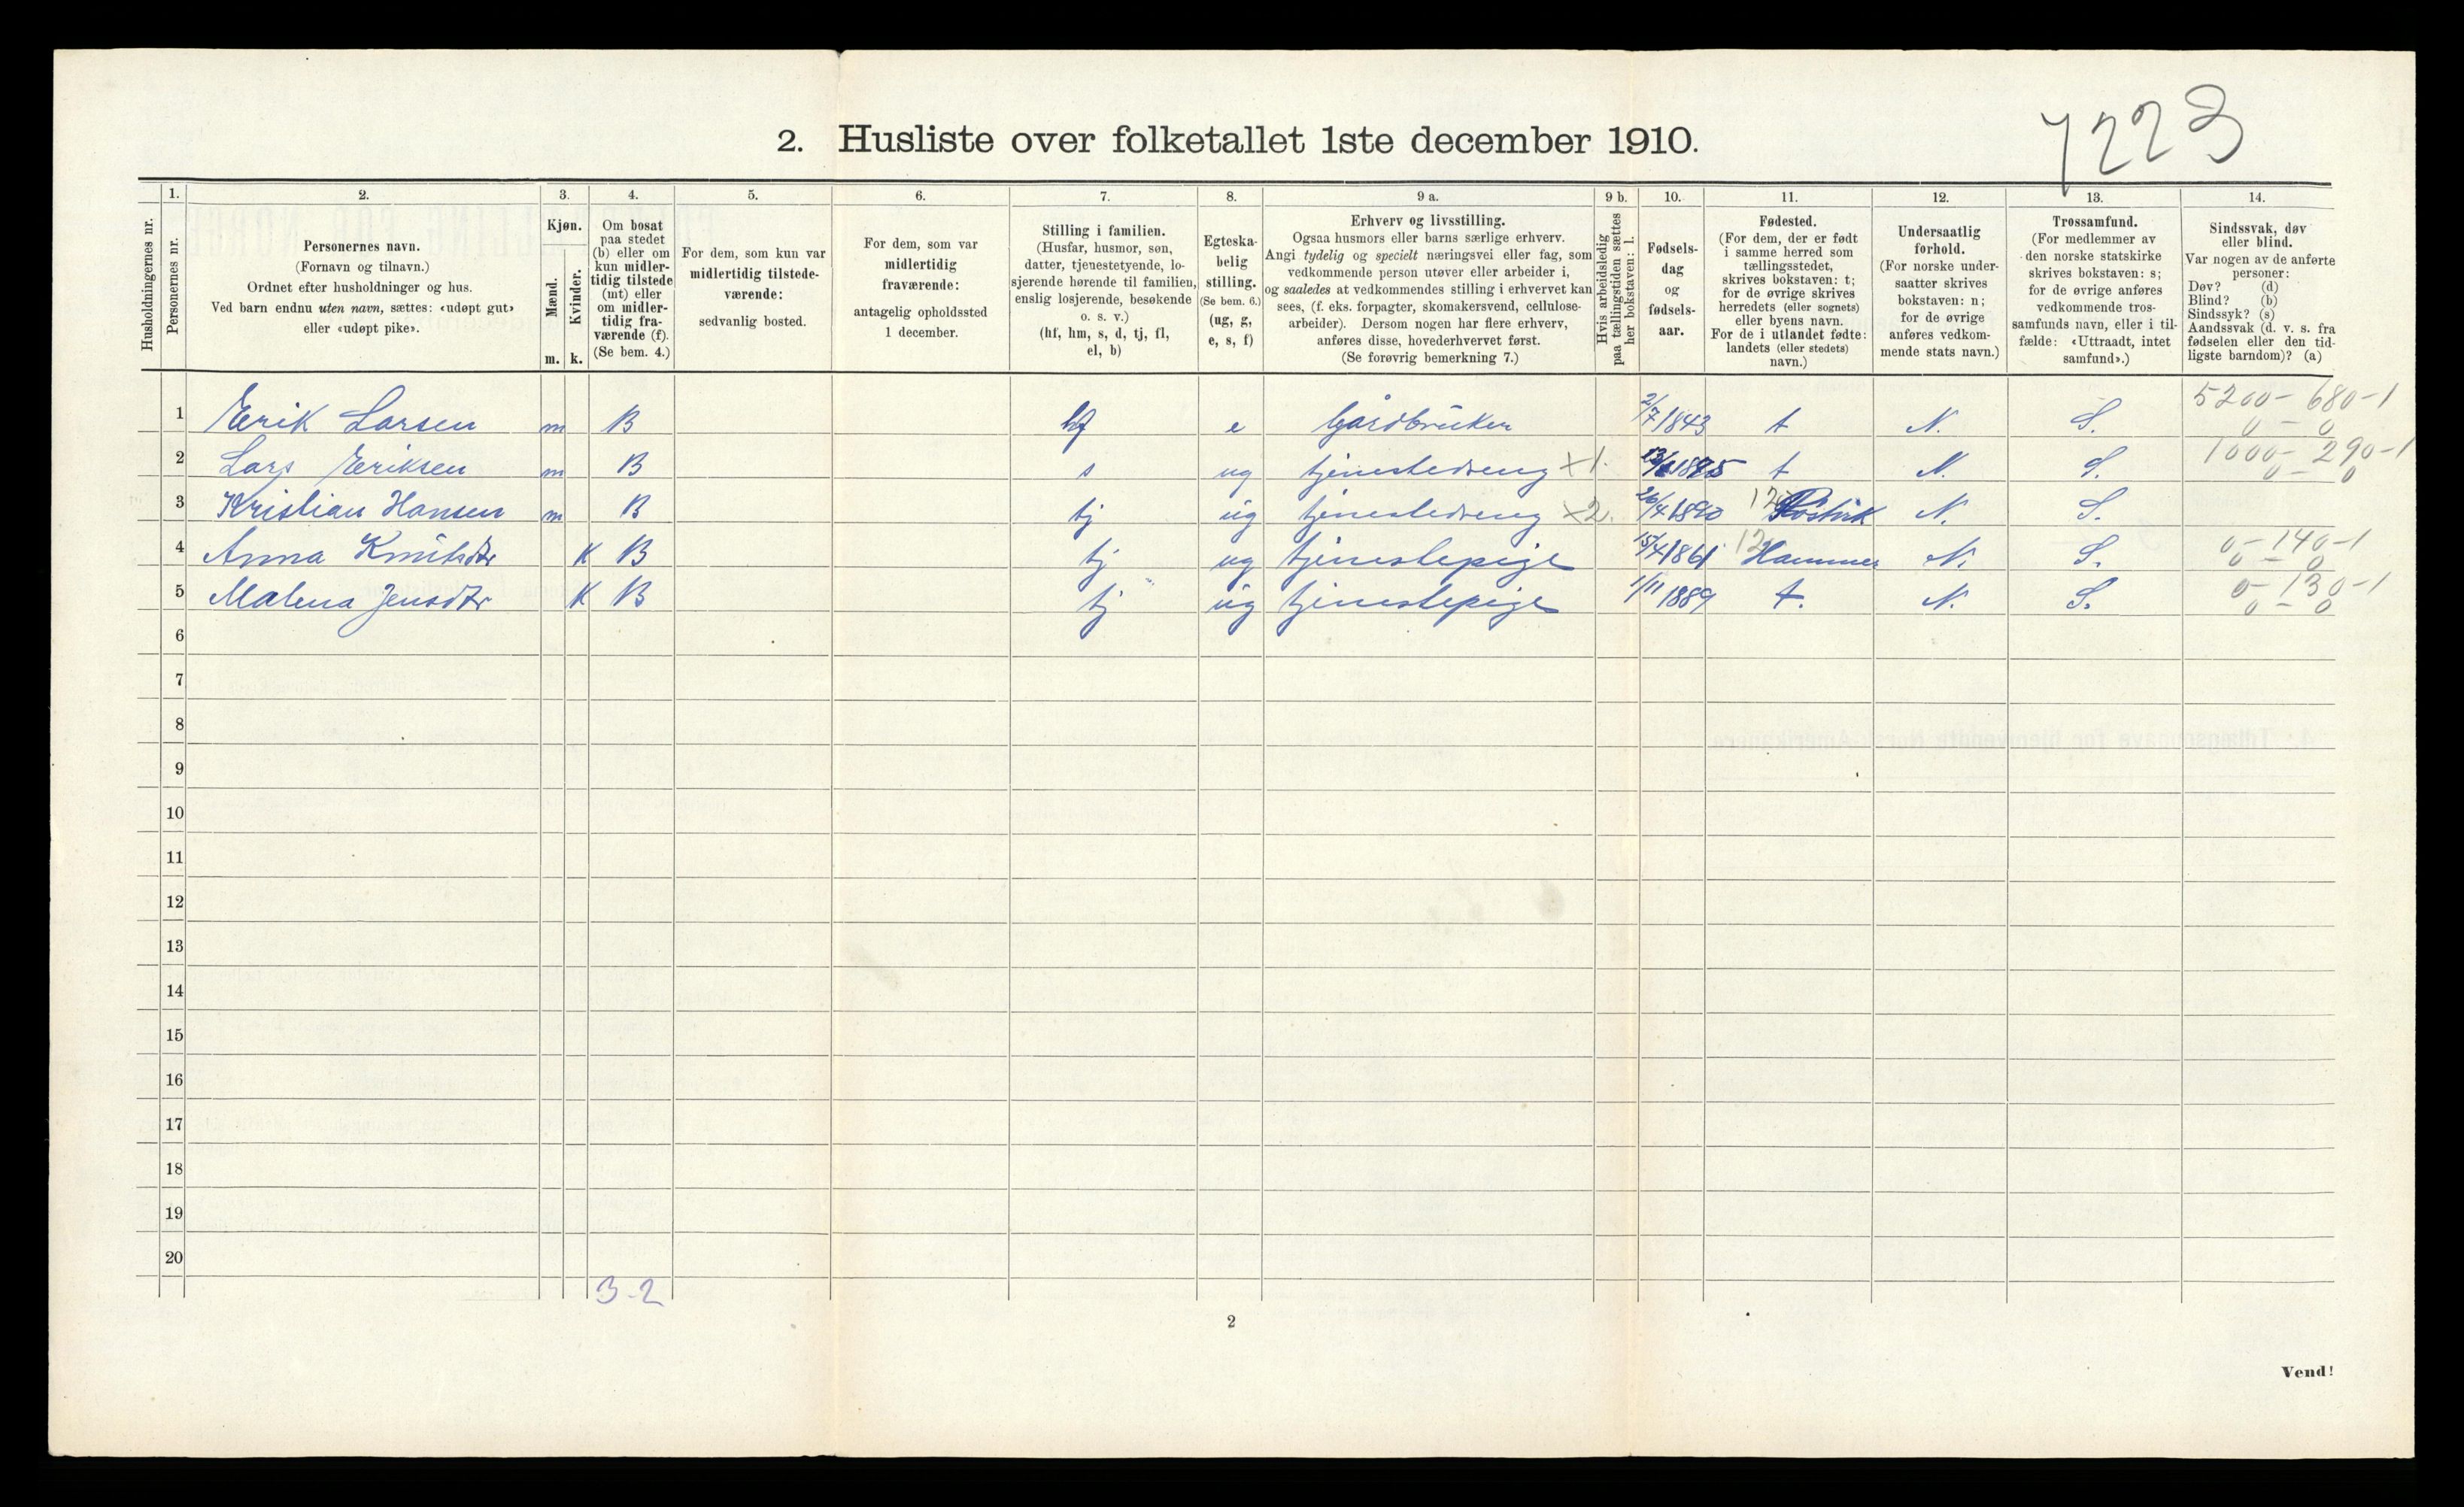 7223
2. Husliste over folketallet 1ste december 1910.
Husholdningernes nr.
1.
Personernes nr.
2.
Personernes navn.
(Fornavn og tilnavn.)
Ordnet efter husholdninger og hus.
Ved barn endnu uten navn, sættes: «udøpt gut»
eller «udøpt pike».
3.
Kjøn.
Mænd.
Kvinder.
m. k.
4.
Om bosat
paa stedet
(b) eller om
kun midler-
tidig tilstede
(mt) eller
om midler-
tidig fra-
værende (f).
(Se bem. 4.)
5.
For dem, som kun var
midlertidig tilstede-
værende:
sedvanlig bosted.
6.
For dem, som var
midlertidig
fraværende:
antagelig opholdssted
1 december.
7.
Stilling i familien.
(Husfar, husmor, søn,
datter, tjenestetyende, lo-
sjerende hørende til familien,
enslig losjerende, besøkende
o. s. v.)
(hf, hm, s, d, tj, fl,
el, b)
8.
Egteska-
belig
stilling.
(Se bem. 6.)
(ug, g,
e, s, f)
9 a.
Erhverv og livsstilling.
Ogsaa husmors eller barns særlige erhverv.
Angi tydelig og specielt næringsvei eller fag, som
vedkommende person utøver eller arbeider i,
og saaledes at vedkommendes stilling i erhvervet kan
sees, (f. eks. forpagter, skomakersvend, cellulose-
arbeider). Dersom nogen har flere erhverv,
anføres disse, hovederhvervet først.
(Se forøvrig bemerkning 7.)
9 b.
Hvis arbeidsledig
paa tællingstiden sættes
her bokstaven: l.
10.
Fødsels-
dag
og
fødsels-
aar.
11.
Fødested.
(For dem, der er født
i samme herred som
tællingsstedet,
skrives bokstaven: t;
for de øvrige skrives
herredets (eller sognets)
eller byens navn.
For de i utlandet fødte:
landets (eller stedets)
navn.)
12.
Undersaatlig
forhold.
(For norske under-
saatter skrives
bokstaven: n;
for de øvrige
anføres vedkom-
mende stats navn.)
13.
Trossamfund.
(For medlemmer av
den norske statskirke
skrives bokstaven: s;
for de øvrige anføres
vedkommende tros-
samfunds navn, eller i til-
fælde: «Uttraadt, intet
samfund».)
14.
Sindssvak, døv
eller blind.
Var nogen av de anførte
personer:
Døv? (d)
Blind? (b)
Sindssyk? (s)
Aandssvak (d. v. s. fra
fødselen eller den tid-
ligste barndom)? (a)
1 Erik Larsen m B hf e Gårdbruker 2/7 1843 t N. S. 5200 - 680 - 1
0 - 0
2 Lars Eriksen m B s ug tjenestedreng x1. t N. S. 1000 - 290 - 1
0 - 0
3 Kristian Hansen m B tj ug tjenestedreng x2. 26/4 1890 12 N. S.
4 Anna Knutsdtr K B tj ug tjenestepige 15/4 1861 12 Hammer N. S. 0 - 140 - 1
0 - 0
5 Malena Jensdtr K B tj ug tjenestepige 1/11 1889 t. N. S. 0 - 130 - 1
0 - 0
6
7
8
9
10
11
12
13
14
15
16
17
18
19
20
3-2
2
Vend!